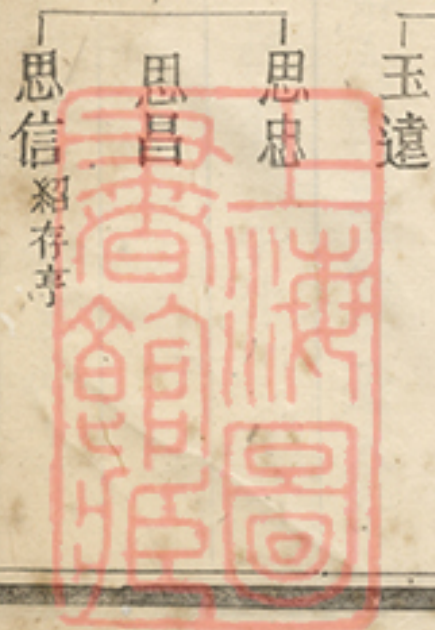 玉遠
思忠
思昌
思信 紹存亭
上海圖
書館藏